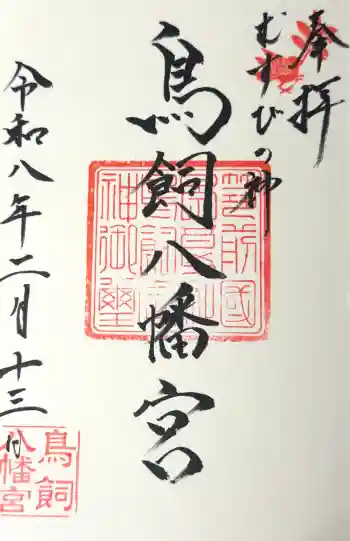 奉拝
むすびの神
鳥飼八幡宮
令和八年二月十三日
筑前國
神御璽
鳥飼
八幡宮